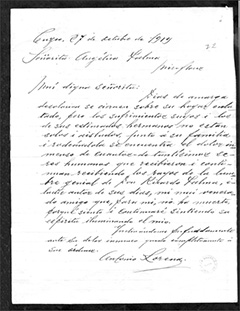 Cuzco, 27 de octubre de 1919
Señorita Angélica Palma
Miraflores
Mui digna señorita:
Días de amarga
desolación se ciernen sobre su hogar enlu-
tado, pero los sufrimientos suyos i los
de sus estimados hermanos no están
solos i aislados: junto a su familia
i rodeándola se encuentra el dolor in-
menso de cuantos de tantísimos se-
res humanas que recibieron i conti-
nuan recibiendo los rayos de la lumbre
genial de don Ricardo Palma, i
de mi venera-
do amigo que, para mi, no ha muerto,
porque siento i continuaré sintiendo su
espíritu iluminando el mio.
Inclinándome profundamente
ante su dolor inmenso quedo
a sus órdenes.
Antonio Lorena